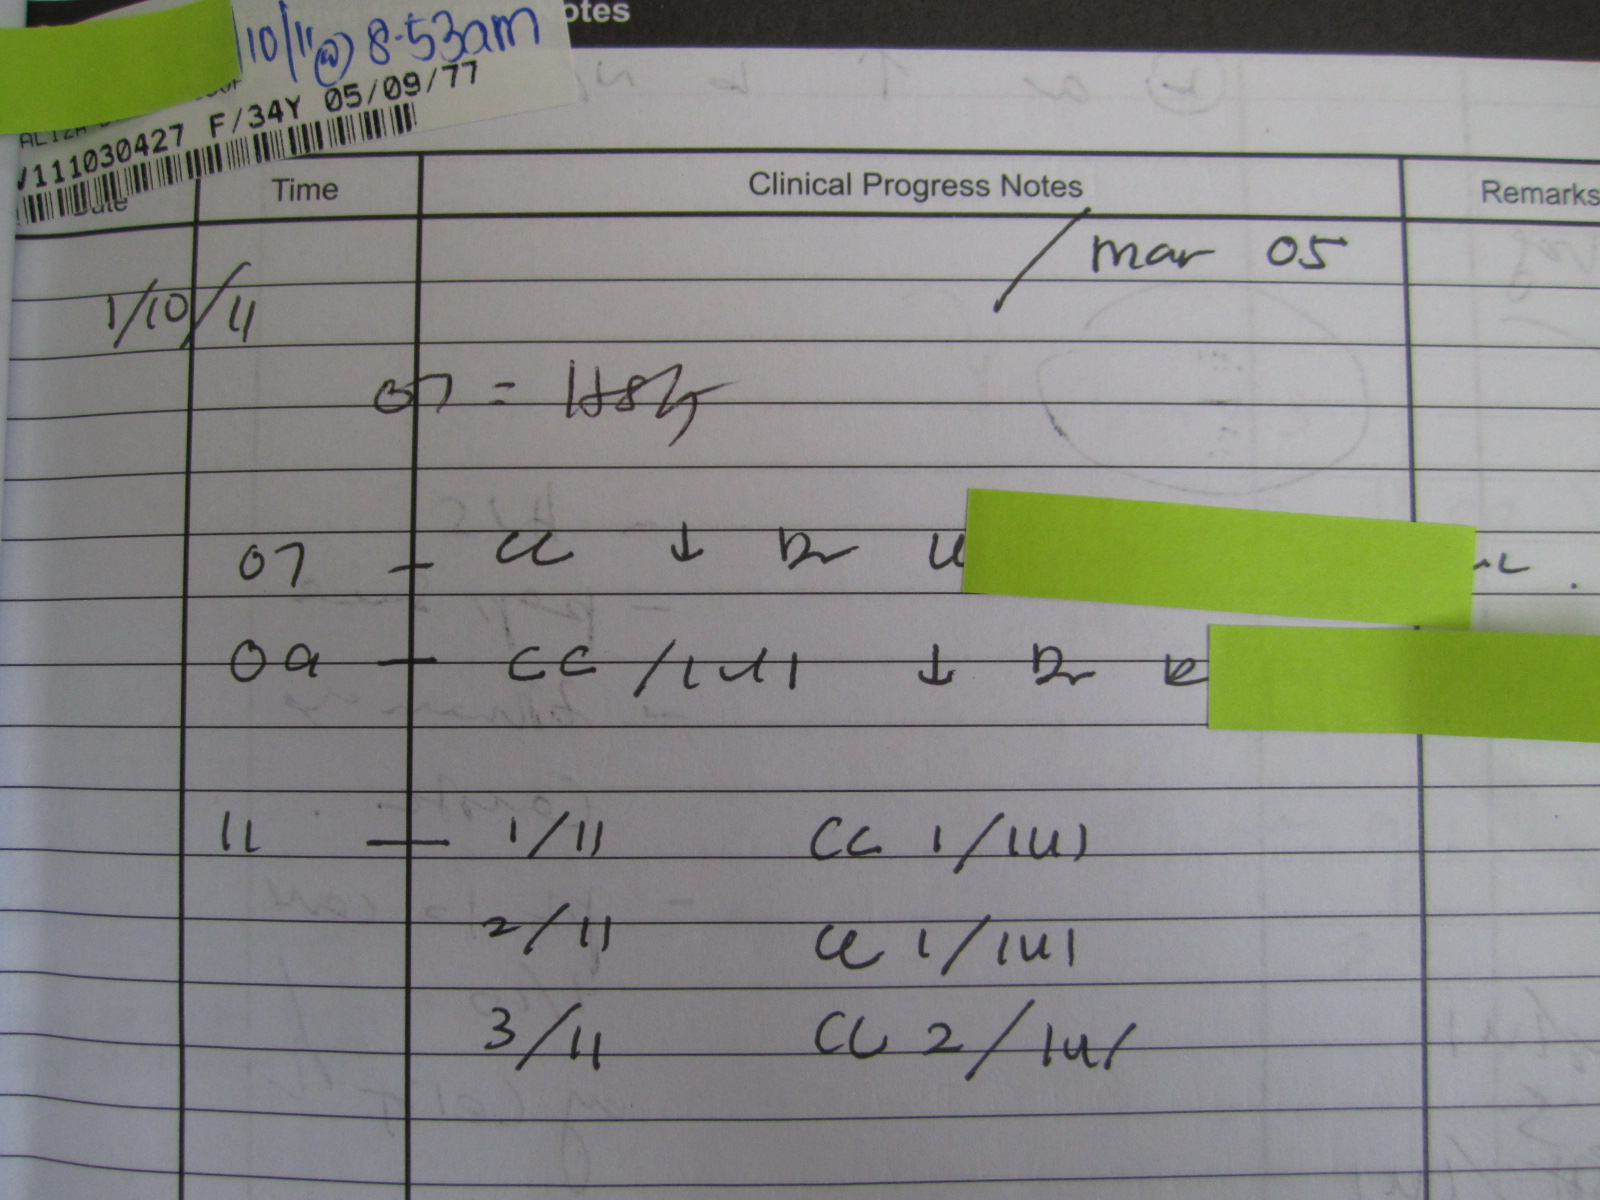 otes
10/11 @ 8.53am
F/34Y 05/09/77
V111030427
Date Time Clinical Progress Notes Remarks
/ mar 05
1/10/11
07 = HSG
07 — CC ↓ Dr
09 — CC /IUI ↓ Dr
11 — 1/11 CC 1/IUI
2/11 CC 1/IUI
3/11 CC 2/IUI